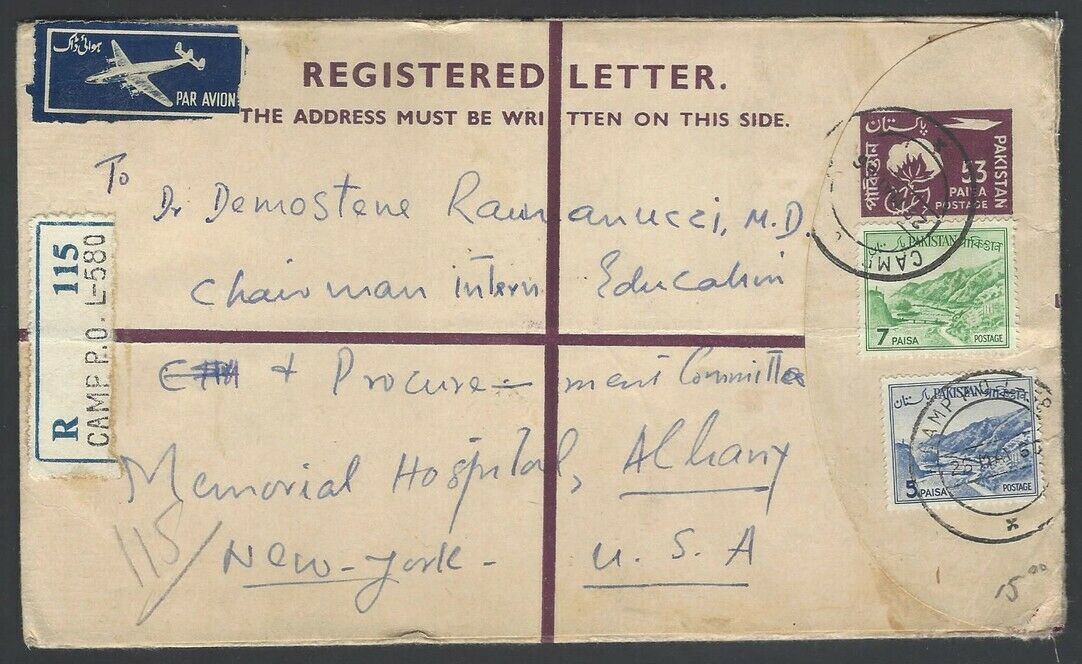 ہوائی ڈاک
PAR AVION
REGISTERED LETTER.
THE ADDRESS MUST BE WRITTEN ON THIS SIDE.
پاکستان
পাকিস্তান
PAKISTAN
53
PAISA
POSTAGE
To
Dr Demostene Raumanucci, M.D.
Chairman Intern Education
R 115
CAMP P.O. L-580
PAKISTAN
پاکستان
পাকিস্তান
7 PAISA POSTAGE
+ Procure- ment Committee
Memorial Hospital, Albany
115/
New-York - U.S.A
پاکستان
PAKISTAN
পাকিস্তান
5 PAISA POSTAGE
CAMP
15.00